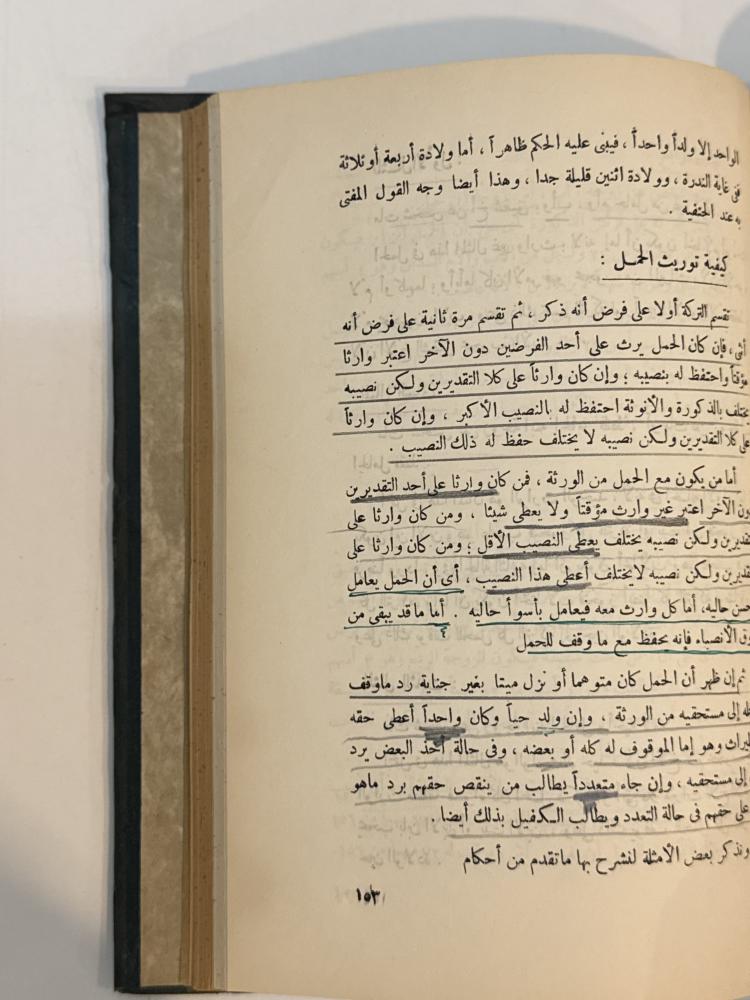 الواحد إلا ولداً واحداً ، فيبنى عليه الحكم ظاهراً ، أما ولادة أربعة أو ثلاثة
ففى غاية الندرة ، وولادة اثنين قليلة جدا ، وهذا أيضا وجه القول المفتى
به عند الحنفية .
كيفية توريث الحمل :
تقسم التركة أولا على فرض أنه ذكر ، ثم تقسم مرة ثانية على فرض أنه
أنثى ، فإن كان الحمل يرث على أحد الفرضين دون الآخر اعتبر وارثا
مؤقتاً واحتفظ له بنصيبه ؛ وإن كان وارثاً على كلا التقديرين ولكن نصيبه
يختلف بالذكورة والأنوثة احتفظ له بالنصيب الأكبر ، وإن كان وارثاً
على كلا التقديرين ولكن نصيبه لا يختلف حفظ له ذلك النصيب .
أما من يكون مع الحمل من الورثة ، فمن كان وارثا على أحد التقديرين
دون الآخر اعتبر غير وارث مؤقتاً ولا يعطى شيئا ، ومن كان وارثا على
ولكن نصيبه يختلف يعطى النصيب الأقل ؛ ومن كان وارثا على
ولكن نصيبه لا يختلف أعطى هذا النصيب ، أى أن الحمل يعامل
حاليه، أما كل وارث معه فيعامل بأسوأ حاليه . أما ما قد يبقى من
الأنصباء فإنه يحفظ مع ما وقف للحمل
ثم إن ظهر أن الحمل كان متوهما أو نزل ميتا بغير جناية رد ما وقف
إلى مستحقيه من الورثة ، وإن ولد حياً وكان واحداً أعطى حقه
وهو إما الموقوف له كله أو بعضه ، وفى حالة أخذ البعض يرد
إلى مستحقيه ، وإن جاء متعدداً يطالب من ينقص حقهم برد ماهو
على حقهم فى حالة التعدد ويطالب الكفيل بذلك أيضا .
ونذكر بعض الأمثلة لنشرح بها ماتقدم من أحكام
١٥٣